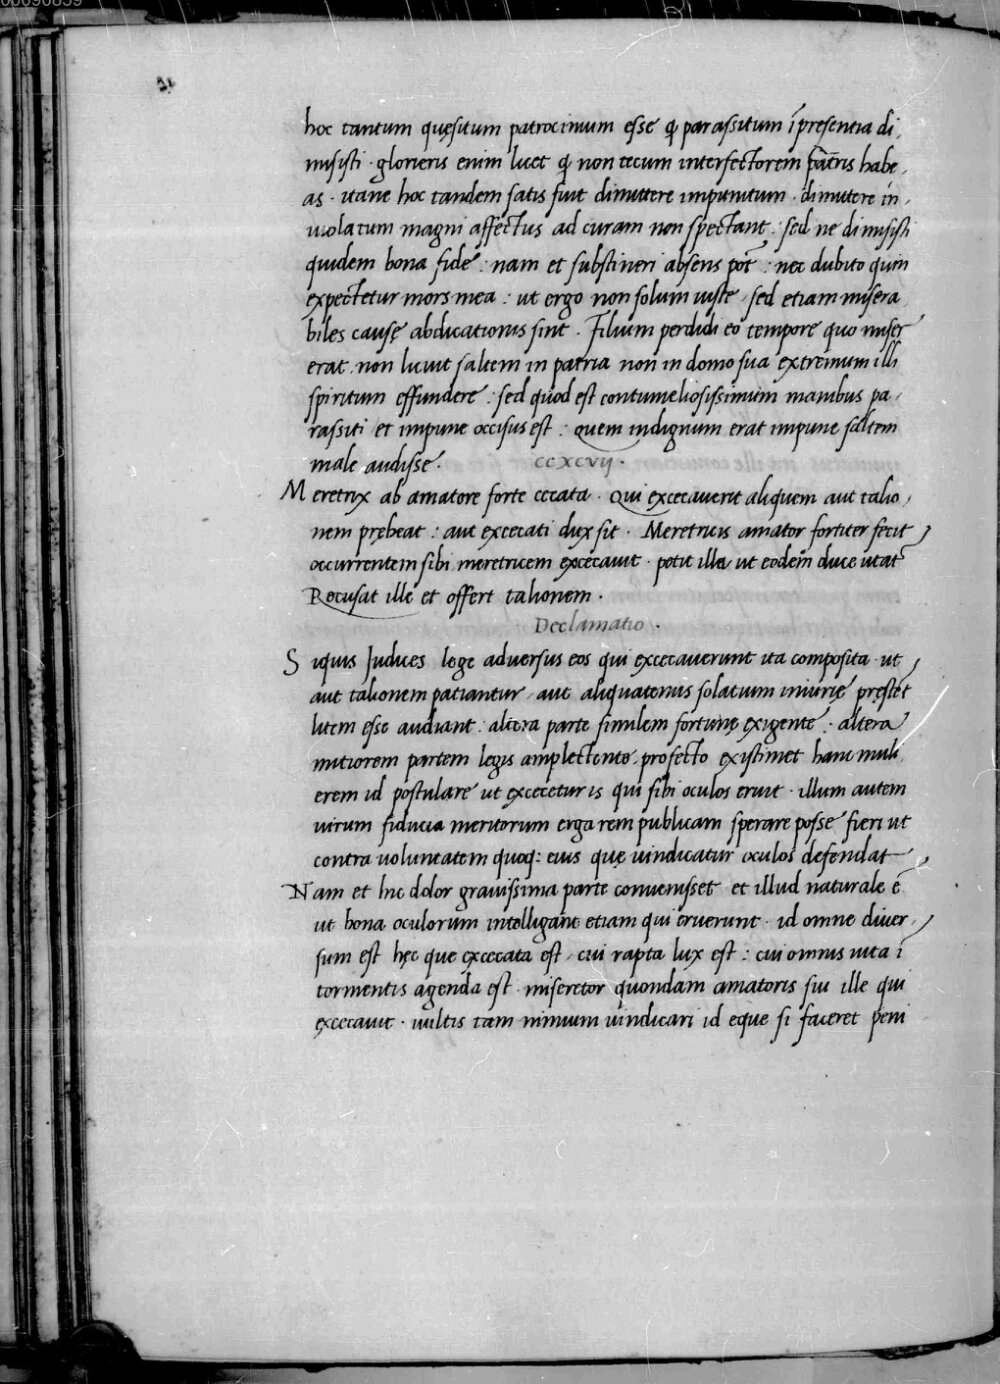 00090859
hoc tantum quęsitum patrocinium esse q̃ parassitum ĩpresentia di,
misisti · glorieris enim licet q̃ non tecum interfectorem patris habe,
as · itane hoc tandem satis fuit dimittere impunitum · dimittere in,
uiolatum magni affectus ad curam non spectant : sed ne dimisisti
quidem bona fide : nam et substineri absens pot̃ : nec dubito quin
expectetur mors mea : ut ergo non solum iuste sed etiam misera
biles causę abdicationis sint · Filium perdidi eo tempore quo miser
erat, non licuit saltem in patria non in domo sua extremum illi
spiritum effundere : sed quod est contumeliosissimum manibus pa,
rassiti et impune occisus est : quem indignum erat impune saltem
male audisse · ccxcvij ·
Meretrix ab amatore forte cecata · Qui excecauerit aliquem aut talio,
nem prębeat : aut excecati dux sit · Meretricis amator fortiter fecit
occurrentem sibi meretricem excecauit · petit illa ut eodem duce utat̃
Recusat ille et offert talionem ·
Declamatio ·
Siquis Judices lege aduersus eos qui excecauerunt ita composita ut
aut talionem patiantur aut aliquatenus solatium iniurię pręstet
litem esse audiant : altera parte similem fortunę exigente : altera
mitiorem partem legis amplectente, profecto existimet hanc muli,
erem id postulare ut excecetur is qui sibi oculos eruit · illum autem
uirum fiducia meritorum erga rem publicam sperare posse fieri ut
contra uoluntatem quoq: eius quę uindicatur oculos defendat
Nam et hic dolor grauissima parte conuenisset et illud naturale ẽ
ut bona oculorum intelligant etiam qui eruerunt · id omne diuer,
sum est hęc que excecata est cui rapta lux est : cui omnis uita ĩ
tormentis agenda est · miseretor quondam amatoris sui ille qui
excecauit · uultis tam nimium uindicari id eque si faceret peni